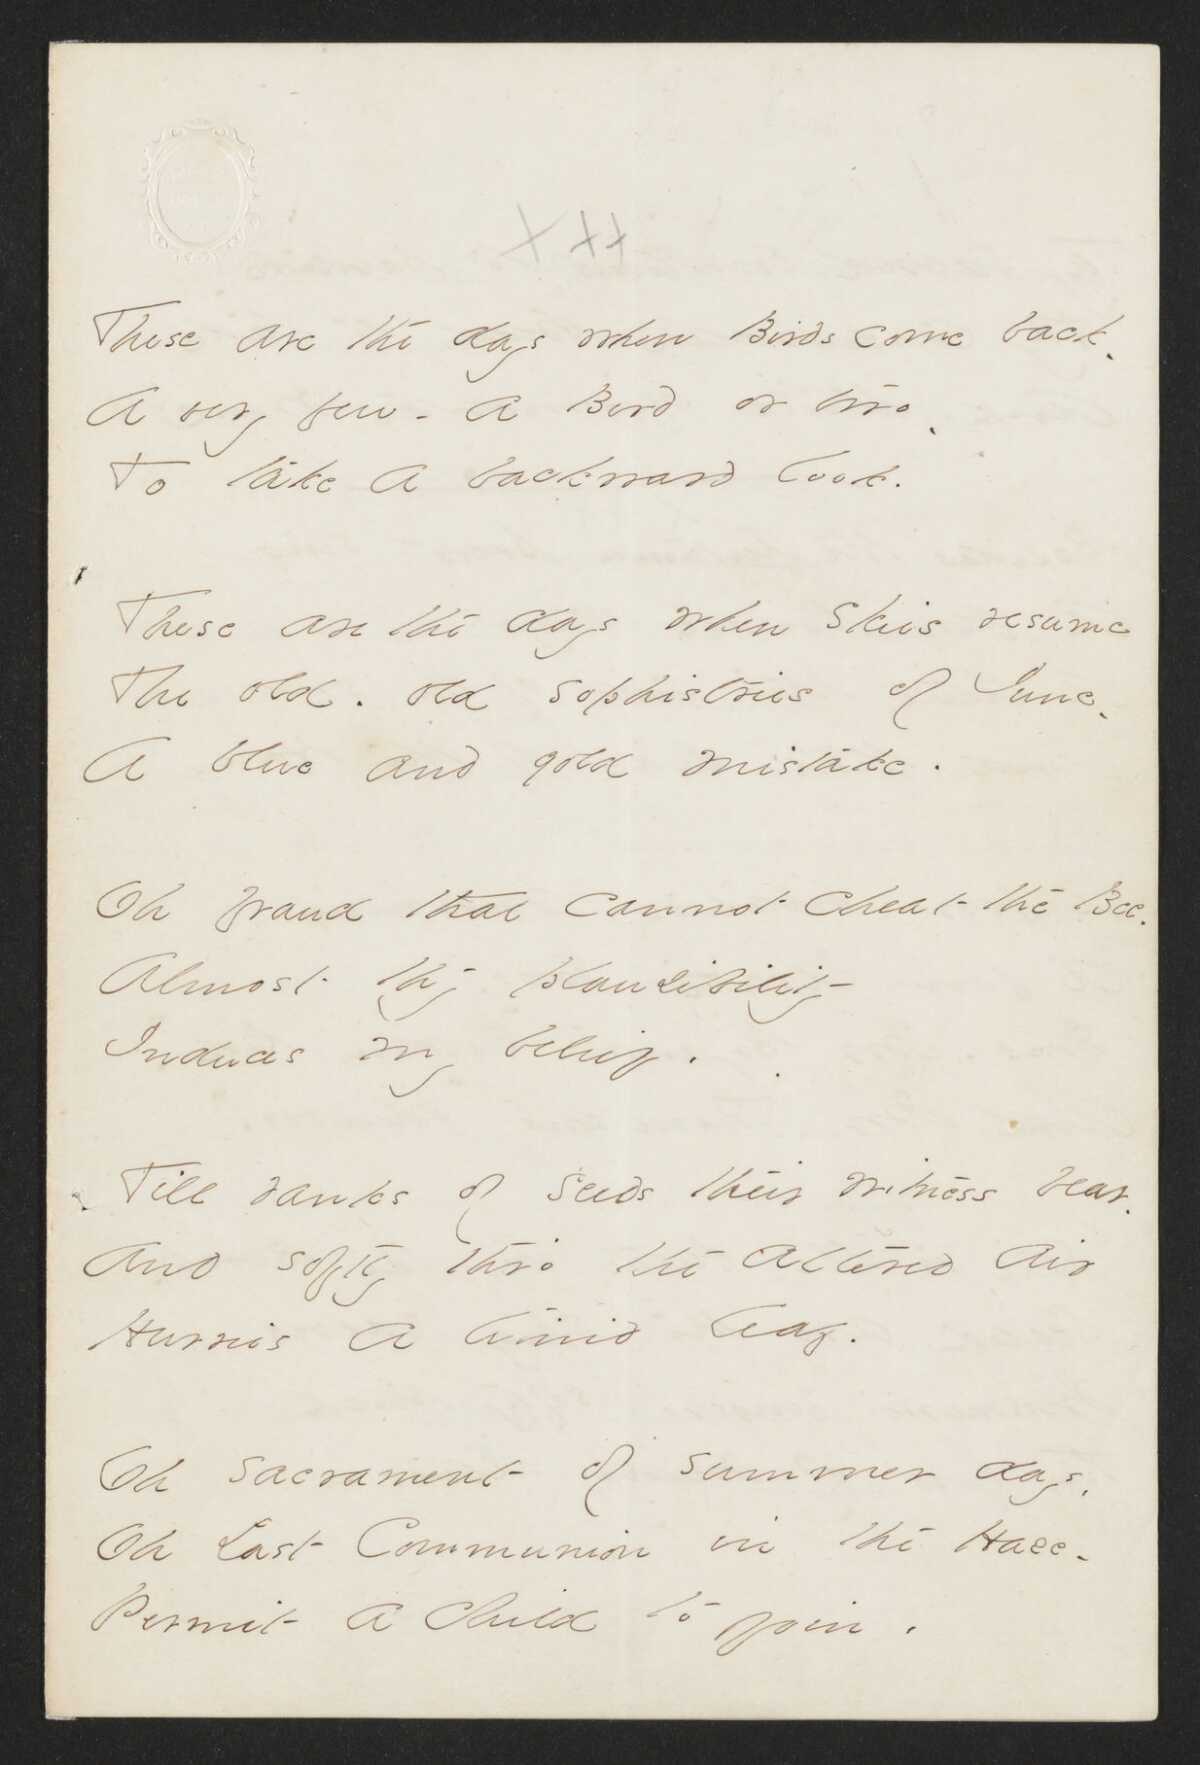 XXX
These are the days when Birds come back.
A very few - A Bird or two.
To take a backward look.
These are the days when Skies resume
The old. old sophistries of June.
A blue and gold mistake.
Oh fraud that cannot cheat the Bee.
Almost thy plausibility
Induces my belief.
Till ranks of Seeds their witness bear.
And softly thro' the altered air
Hurries a timid leaf.
Oh sacrament of summer days,
Oh Last Communion in the Haze -
Permit a Child to join.